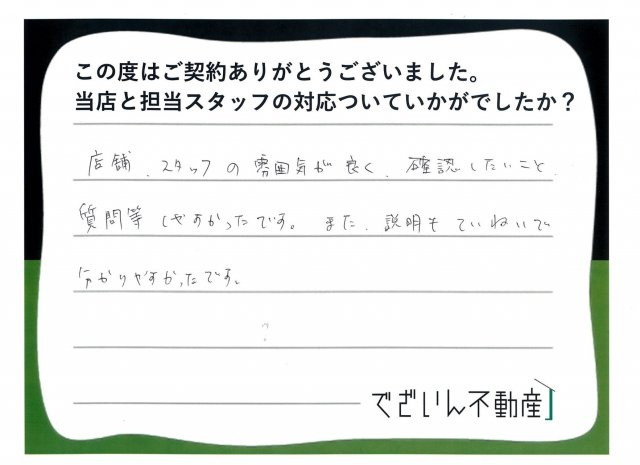 この度はご契約ありがとうございました。
当店と担当スタッフの対応ついていかがでしたか？
店舗、スタッフの雰囲気が良く、確認したいこと、
質問等しやすかったです。また、説明もていねいで
分かりやすかったです。
でざいん不動産